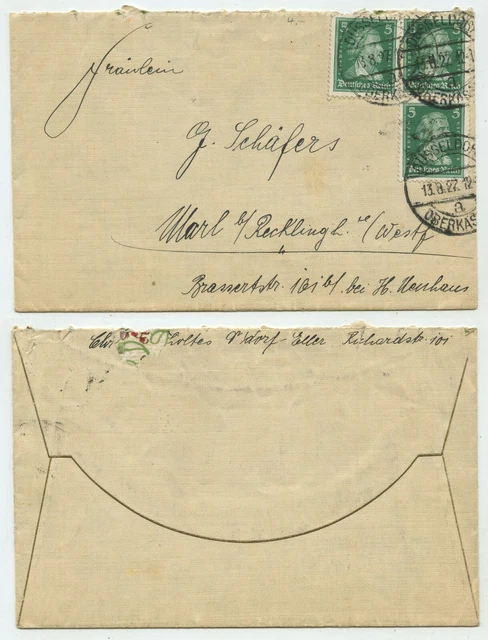 4,-
5 5 5
Deutsches Reich Deutsches Reich
DÜSSELDORF
13.8.27. 12-1
a
OBERKASSEL
5 5
Deutsches Reich
DÜSSELDORF
13.8.27. 12-
a
OBERKAS
Fräulein
J. Schäfers
Marl b/Recklingh. /Westf
Brassertstr. 101 b/ bei H. Neuhaus
Chr Holtes D'dorf-Eller Richardstr. 101